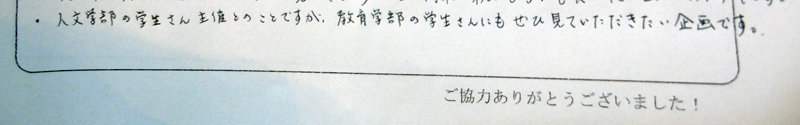 ・人文学部の学生さん主催とのことですが、教育学部の学生さんにもぜひ見ていただきたい企画です。
ご協力ありがとうございました！